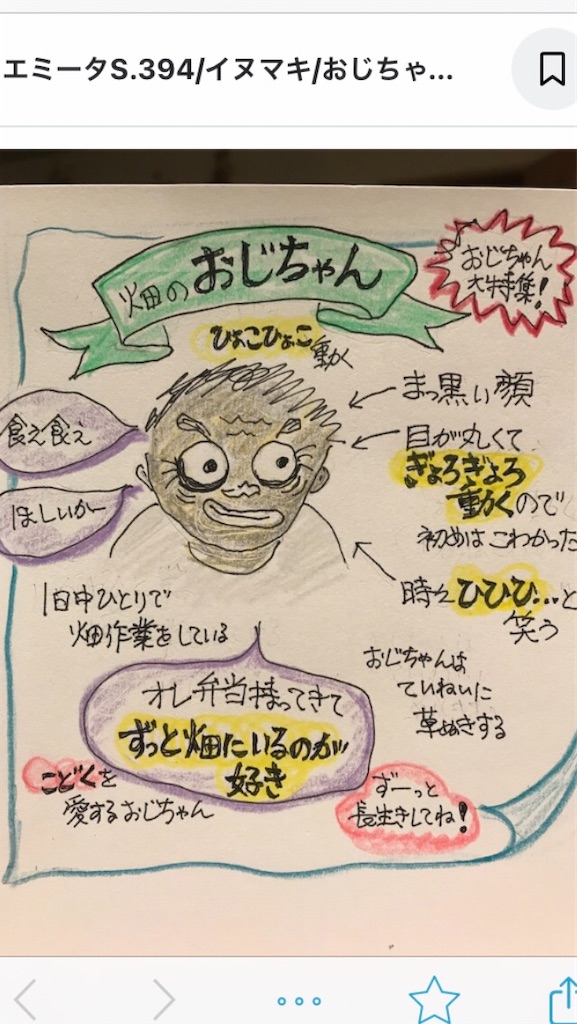 エミータS.394/イヌマキ/おじちゃ...
おじちゃん
大特集!
畑のおじちゃん
ひょこひょこ
動く
まっ黒い顔
食え食え
目が丸くて
ぎょろぎょろ
動くので
初めはこわかった
ほしいかー
時々ひひひ...と
笑う
1日中ひとりで
畑作業をしている
おじちゃんは
ていねいに
草ぬきする
オレ弁当持ってきて
ずっと畑にいるのが
好き
こどくを
愛するおじちゃん
ずーっと
長生きしてね!